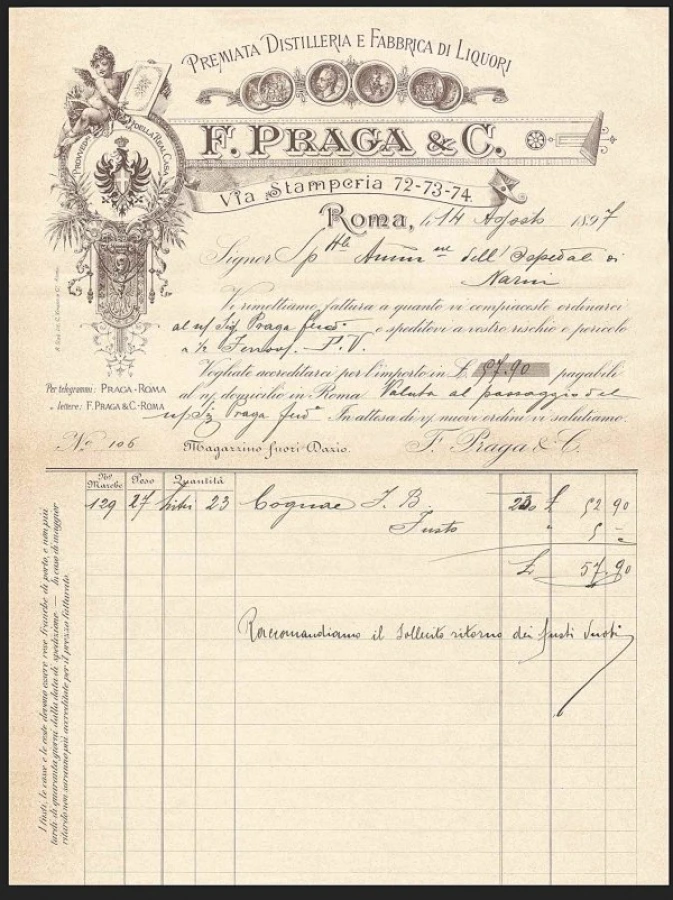 PREMIATA DISTILLERIA E FABBRICA DI LIQUORI
PROVVED. DELLA REAL CASA
F. PRAGA & C.
Via Stamperia 72-73-74.
Roma, li 14 Agosto 1897
Signor Sp ttle Ammne dell' Ospedale di
Narni
Vi rimettiamo fattura a quanto vi compiaceste ordinarci
al n/ Sig Praga Ferdo e speditovi a vostro rischio e pericolo
a ½ Ferrov. P.V.
Vogliate accreditarci per l'importo in £ 57.90 pagabili
al n/ domicilio in Roma Valuta al passaggio del
n/ Sig Praga Ferdo In attesa di v/ nuovi ordini vi salutiamo.
Per telegrammi: PRAGA-ROMA
" lettere: F. PRAGA & C.-ROMA
No 106 Magazzino fuori Dazio. F. Praga & C.
No Marche Peso Quantità
129 27 Litri 23 Cognac I. B. £ 52 90
Fusto " 5 =
£ 57.90
Raccomandiamo il sollecito ritorno dei fusti vuoti
I fusti, le casse e le ceste devono essere rese franche di porto, e non più
tardi di quaranta giorni dalla data di spedizione. — In caso di maggior
ritardo non saranno più accreditate per il prezzo fatturato